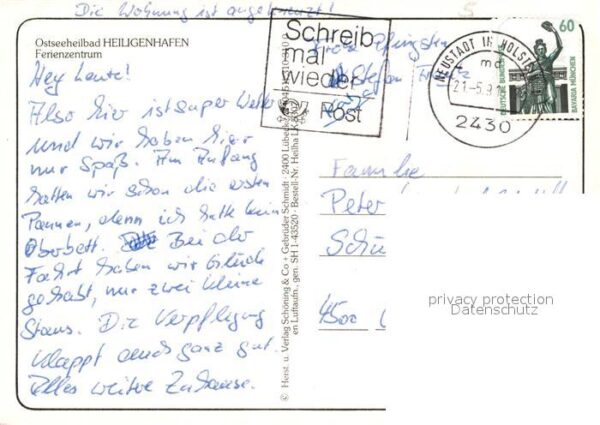 Die Wohnung ist angekreuzt!
Ostseeheilbad HEILIGENHAFEN
Ferienzentrum
Hey Leute!
Also hier ist super Wetter
und wir haben hier
nur Spaß. Am Anfang
hatten wir schon die ersten
Pannen, denn ich hatte kein
Oberbett. Bei der
Fahrt haben wir Glück
gehabt, nur zwei kleine
Staus. Die Verpflegung
klappt auch ganz gut.
Alles weitere Zuhause.
© Herst. u. Verlag Schöning & Co + Gebrüder Schmidt · 2400 Lübeck
en Luftaufn., gen. SH 1-43520 · Bestell-Nr. Heilha
Schreib
mal
wieder
Post
Frohe Pfingsten
Stefan
NEUSTADT IN HOLSTEIN
21.-5.9
2430
60
DEUTSCHE BUNDESPOST
BAVARIA MÜNCHEN
Familie
Peter
Schü
4500
privacy protection
Datenschutz